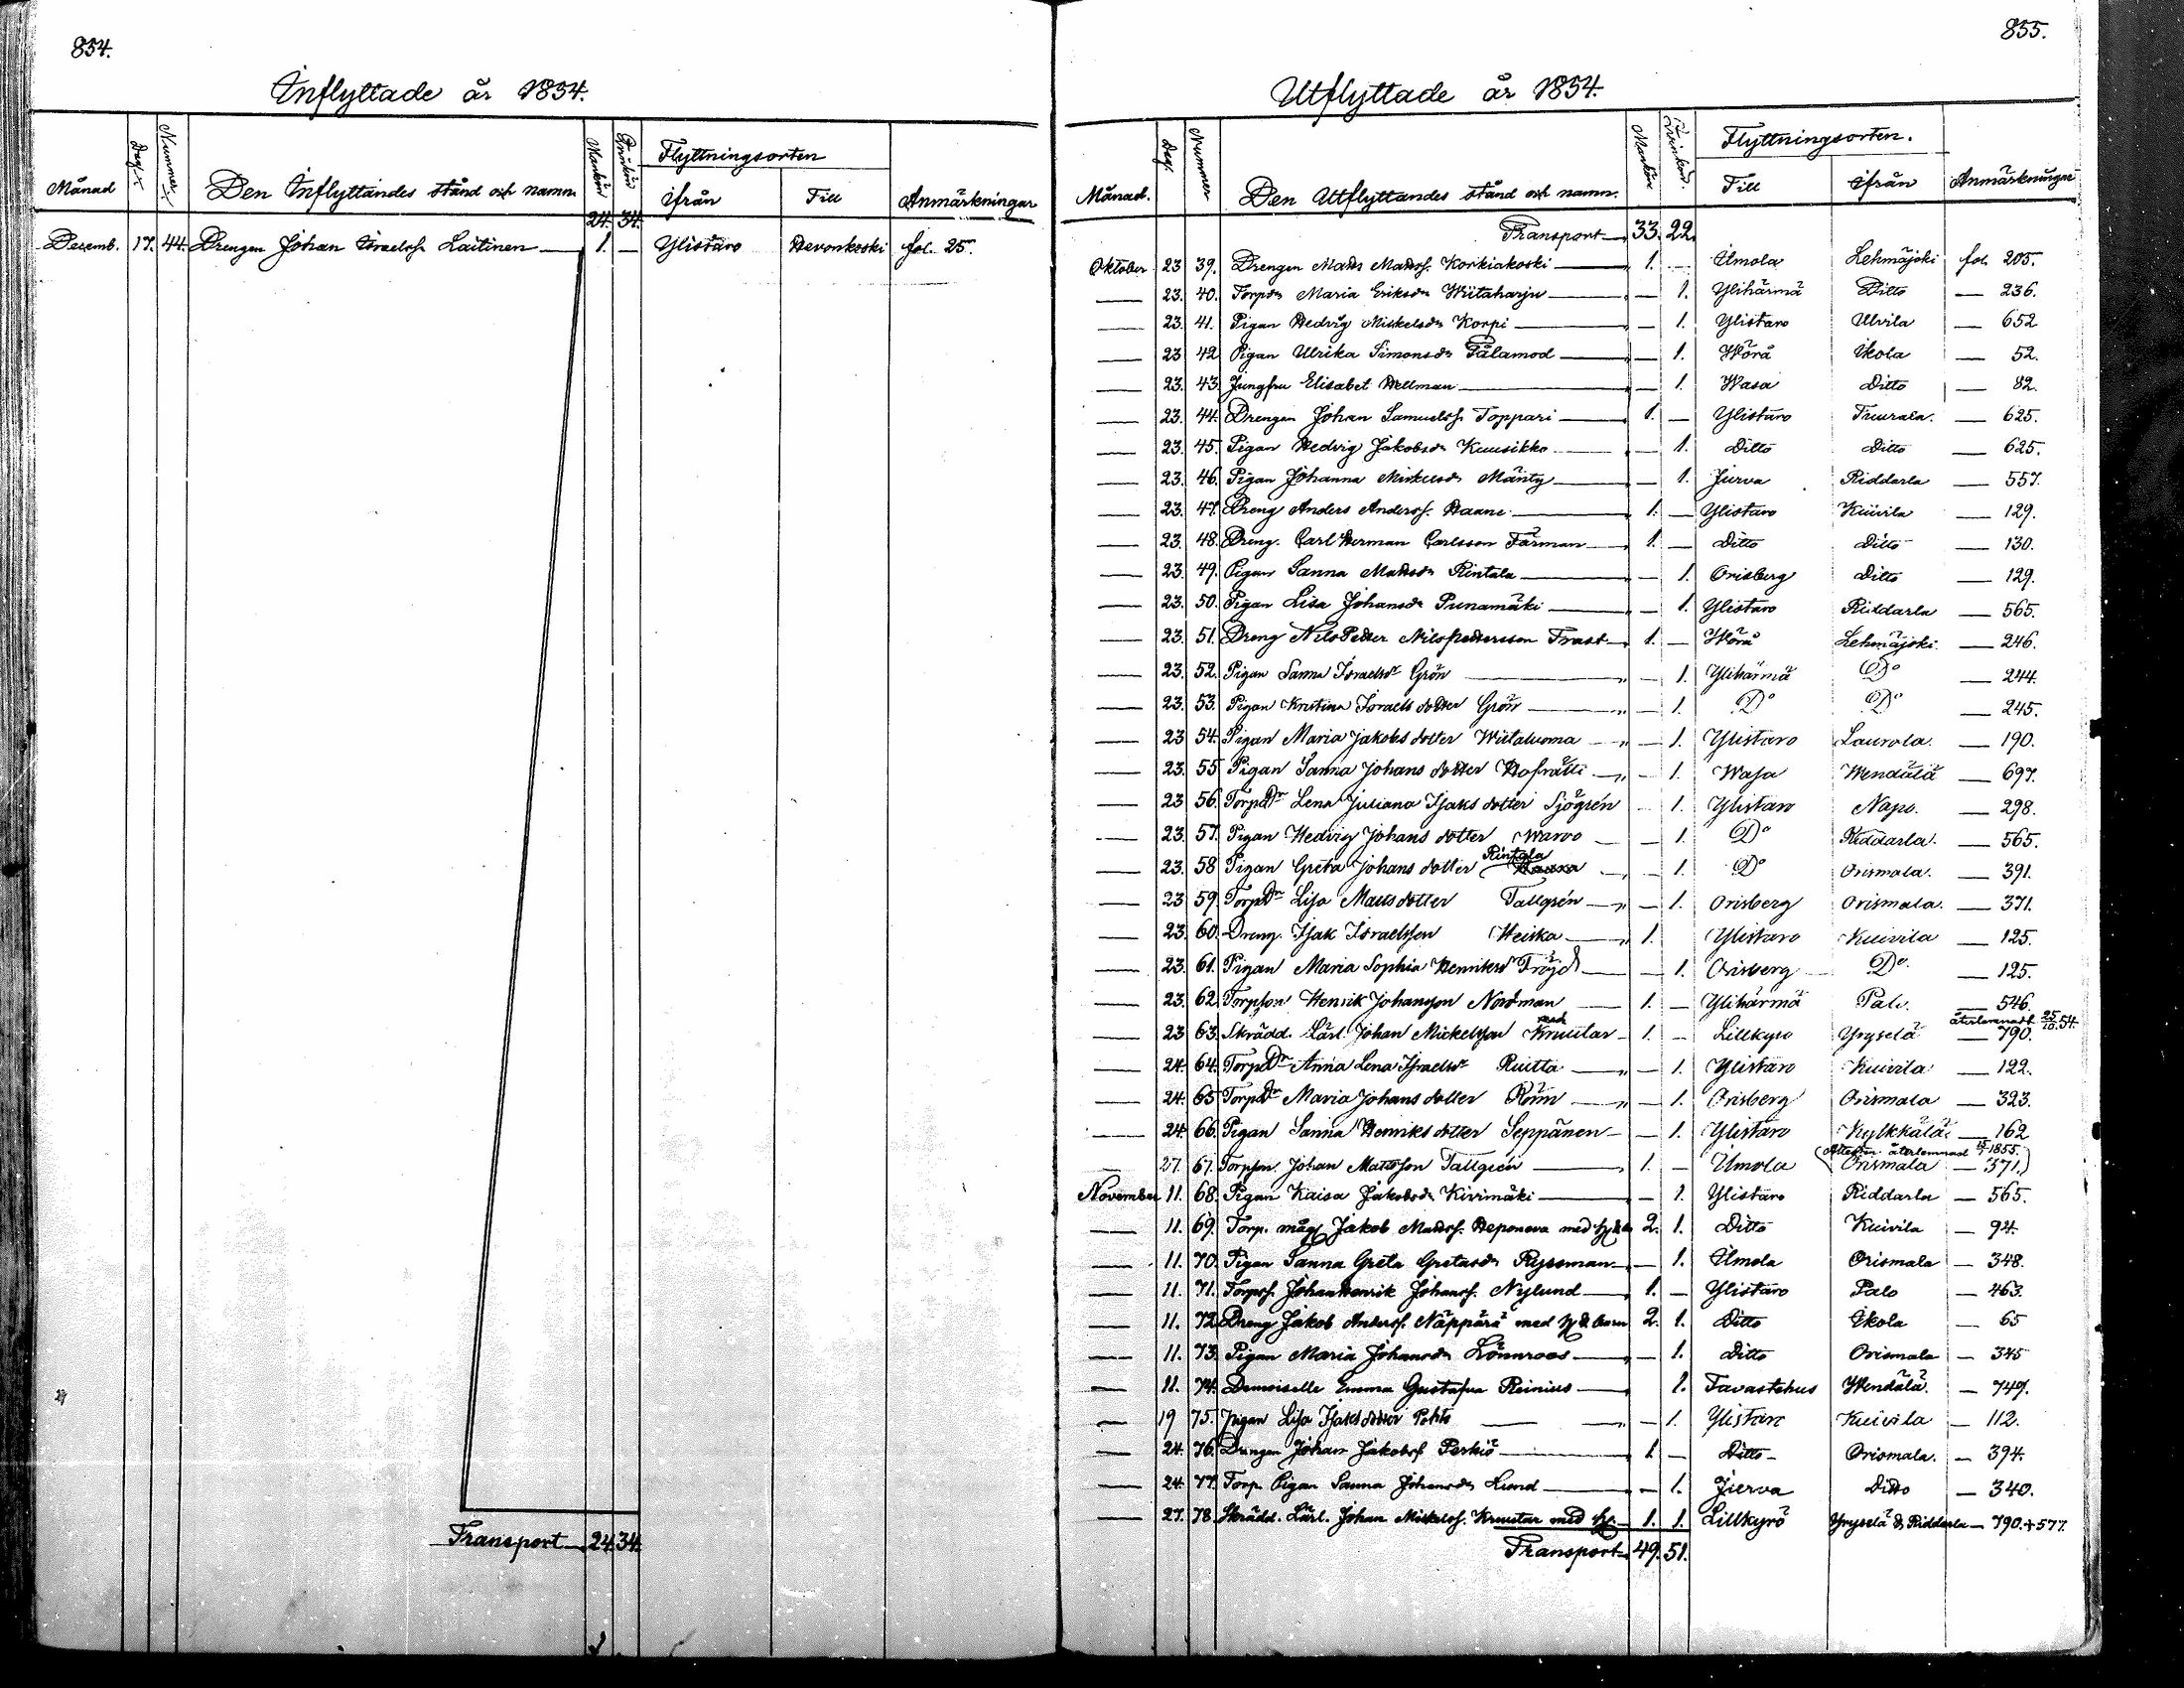 854.
Inflyttade år 1854.
Månad Dag. Nummer. Den Inflyttandes stånd och namn. Mankön Qvinkön Flyttningsorten Ifrån Till Anmärkningar
24. 34.
Decemb. 17. 44. Drengen Johan Israelss. Laitinen — 1. — Ylistaro Hevonkoski fol. 25.
Transport 24. 34.
855.
Utflyttade år 1854.
Månad. Dag. Nummer Den Utflyttandes stånd och namn. Mankön Qvinkön. Flyttningsorten. Till Ifrån Anmärkningar
Transport 33. 22.
Oktober 23 39. Drengen Matts Mattss. Korkiakoski — 1. — Ilmola Lehmäjoki fol. 205.
— 23. 40. Torpdr Maria Eriksdr Wiitaharju — — 1. Ylihärmä Ditto — 236.
— 23. 41. Pigan Hedvig Mickelsdr Korpi — — 1. Ylistaro Ulvila — 652
— 23 42 Pigan Ulrika Simonsdr Pålamod — — 1. Wörå Ikola — 52.
— 23. 43. Jungfru Elisabet Hellman — — 1. Wasa Ditto — 82.
— 23. 44. Drengen Johan Samuelss. Toppari — 1. — Ylistaro Tuurala. — 625.
— 23. 45. Pigan Hedvig Jakobsdr Kuusikko — — 1. Ditto Ditto — 625.
— 23. 46. Pigan Johanna Mickelsdr Mänty — — 1. Jurva Riddarla — 557.
— 23. 47. Dreng Anders Anderss. Haane — 1. — Ylistaro Kuivila — 129.
— 23. 48. Dreng. Carl Herman Carlsson Färman — 1. — Ditto Ditto — 130.
— 23. 49. Pigan Sanna Mattsdr Rintala — — 1. Orisberg Ditto — 129.
— 23. 50. Pigan Lisa Johansdr Punamäki — — 1. Ylistaro Riddarla — 565.
— 23. 51. Dreng Nils Petter Nilspettersson Trast — 1. — Wörå Lehmäjoki — 246.
— 23. 52. Pigan Sanna Israelsdr Grön — — 1. Ylihärmä Do — 244.
— 23. 53. Pigan Kristina Israels dotter Grön — — 1. Do Do — 245.
— 23 54. Pigan Maria Jakobs dotter Wiitaluoma — — 1. Ylistaro Laurola. — 190.
— 23. 55 Pigan Sanna Johans dotter Hofrätti — — 1. Wasa Wendälä — 697.
— 23 56. Torpdr Lena Juliana Isaks dotter Sjögrén — 1. Ylistaro Napo. — 298.
— 23. 57. Pigan Hedvig Johans dotter Warvo — — 1. Do Riddarla. — 565.
— 23. 58 Pigan Greta Johans dotter Rintala — — 1. Do Orismala. — 391.
— 23 59. Torpdr Lisa Matts dotter Tallgrén — — 1. Orisberg Orismala. — 371.
— 23. 60. Dreng. Isak Israelsson Heiska — 1. Ylistaro Kuivila — 125.
— 23. 61. Pigan Maria Sophia Henriksdr Fröjd — — 1. Orisberg Do. — 125.
— 23. 62. Torpson Henrik Johansson Nordman — 1. — Ylihärmä Palo. — 546.
— 23 63. Skrädd. Lärl. Johan Mickelsson Knuutar — 1. — Lillkyro Yryselä återlemnadt 25/10.54. — 790.
— 24. 64. Torpdr Anna Lena Israelsdr Ruitta — — 1. Ylistaro Kuivila — 122.
— 24. 65 Torpdr Maria Johans dotter Rönn — — 1. Orisberg Orismala — 323.
— 24. 66. Pigan Sanna Henriks dotter Seppänen — — 1. Ylistaro Kylkkälä — 162
— 27. 67. Torpson. Johan Mattsson Tallgrén — 1. — Ilmola (Attesten återlemnad 15/7 1855. Orismala — 371.)
November 11. 68. Pigan Kaisa Jakobsdr Kivimäki — — 1. Ylistaro Riddarla — 565.
— 11. 69. Torp. måg Jakob Mattss. Heponeva med 2. 1. Ditto Kuivila — 94.
— 11. 70. Pigan Sanna Greta Gretasdr Ryssman — — 1. Ilmola Orismala — 348.
— 11. 71. Torps. Johan Henrik Johanss. Nylund — 1. — Ylistaro Palo — 463.
— 11. 72. Dreng Jakob Anderss. Näppärä med H & barn 2. 1. Ditto Ikola — 65
— 11. 73. Pigan Maria Johansdr Lönnroos — — 1. Ditto Orismala — 345
— 11. 74. Demoiselle Emma Gustafva Reinius — 1. Tavastehus Wendälä. — 747.
— 19 75. Pigan Lisa Isaks dotter Pohto — — 1. Ylistaro Kuivila — 112.
— 24. 76. Drengen Johan Jakobss. Perkiö — 1. — Ditto Orismala. — 394.
— 24. 77. Torp. Pigan Sanna Johansdr Lund — — 1. Jurva Ditto — 340.
— 27. 78. Skrädd. Lärl. Johan Mickelss. Knuutar med H. — 1. 1. Lillkyrö Yryselä & Riddarla — 790. + 577.
Transport 49. 51.